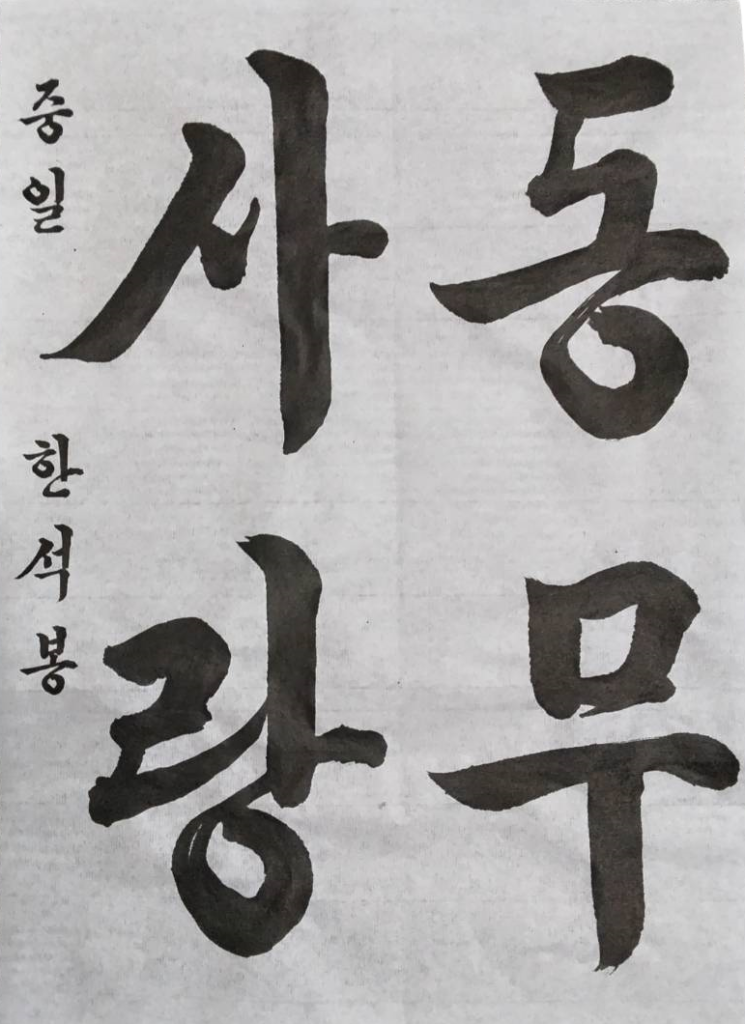 동무
사랑
중일 한석봉